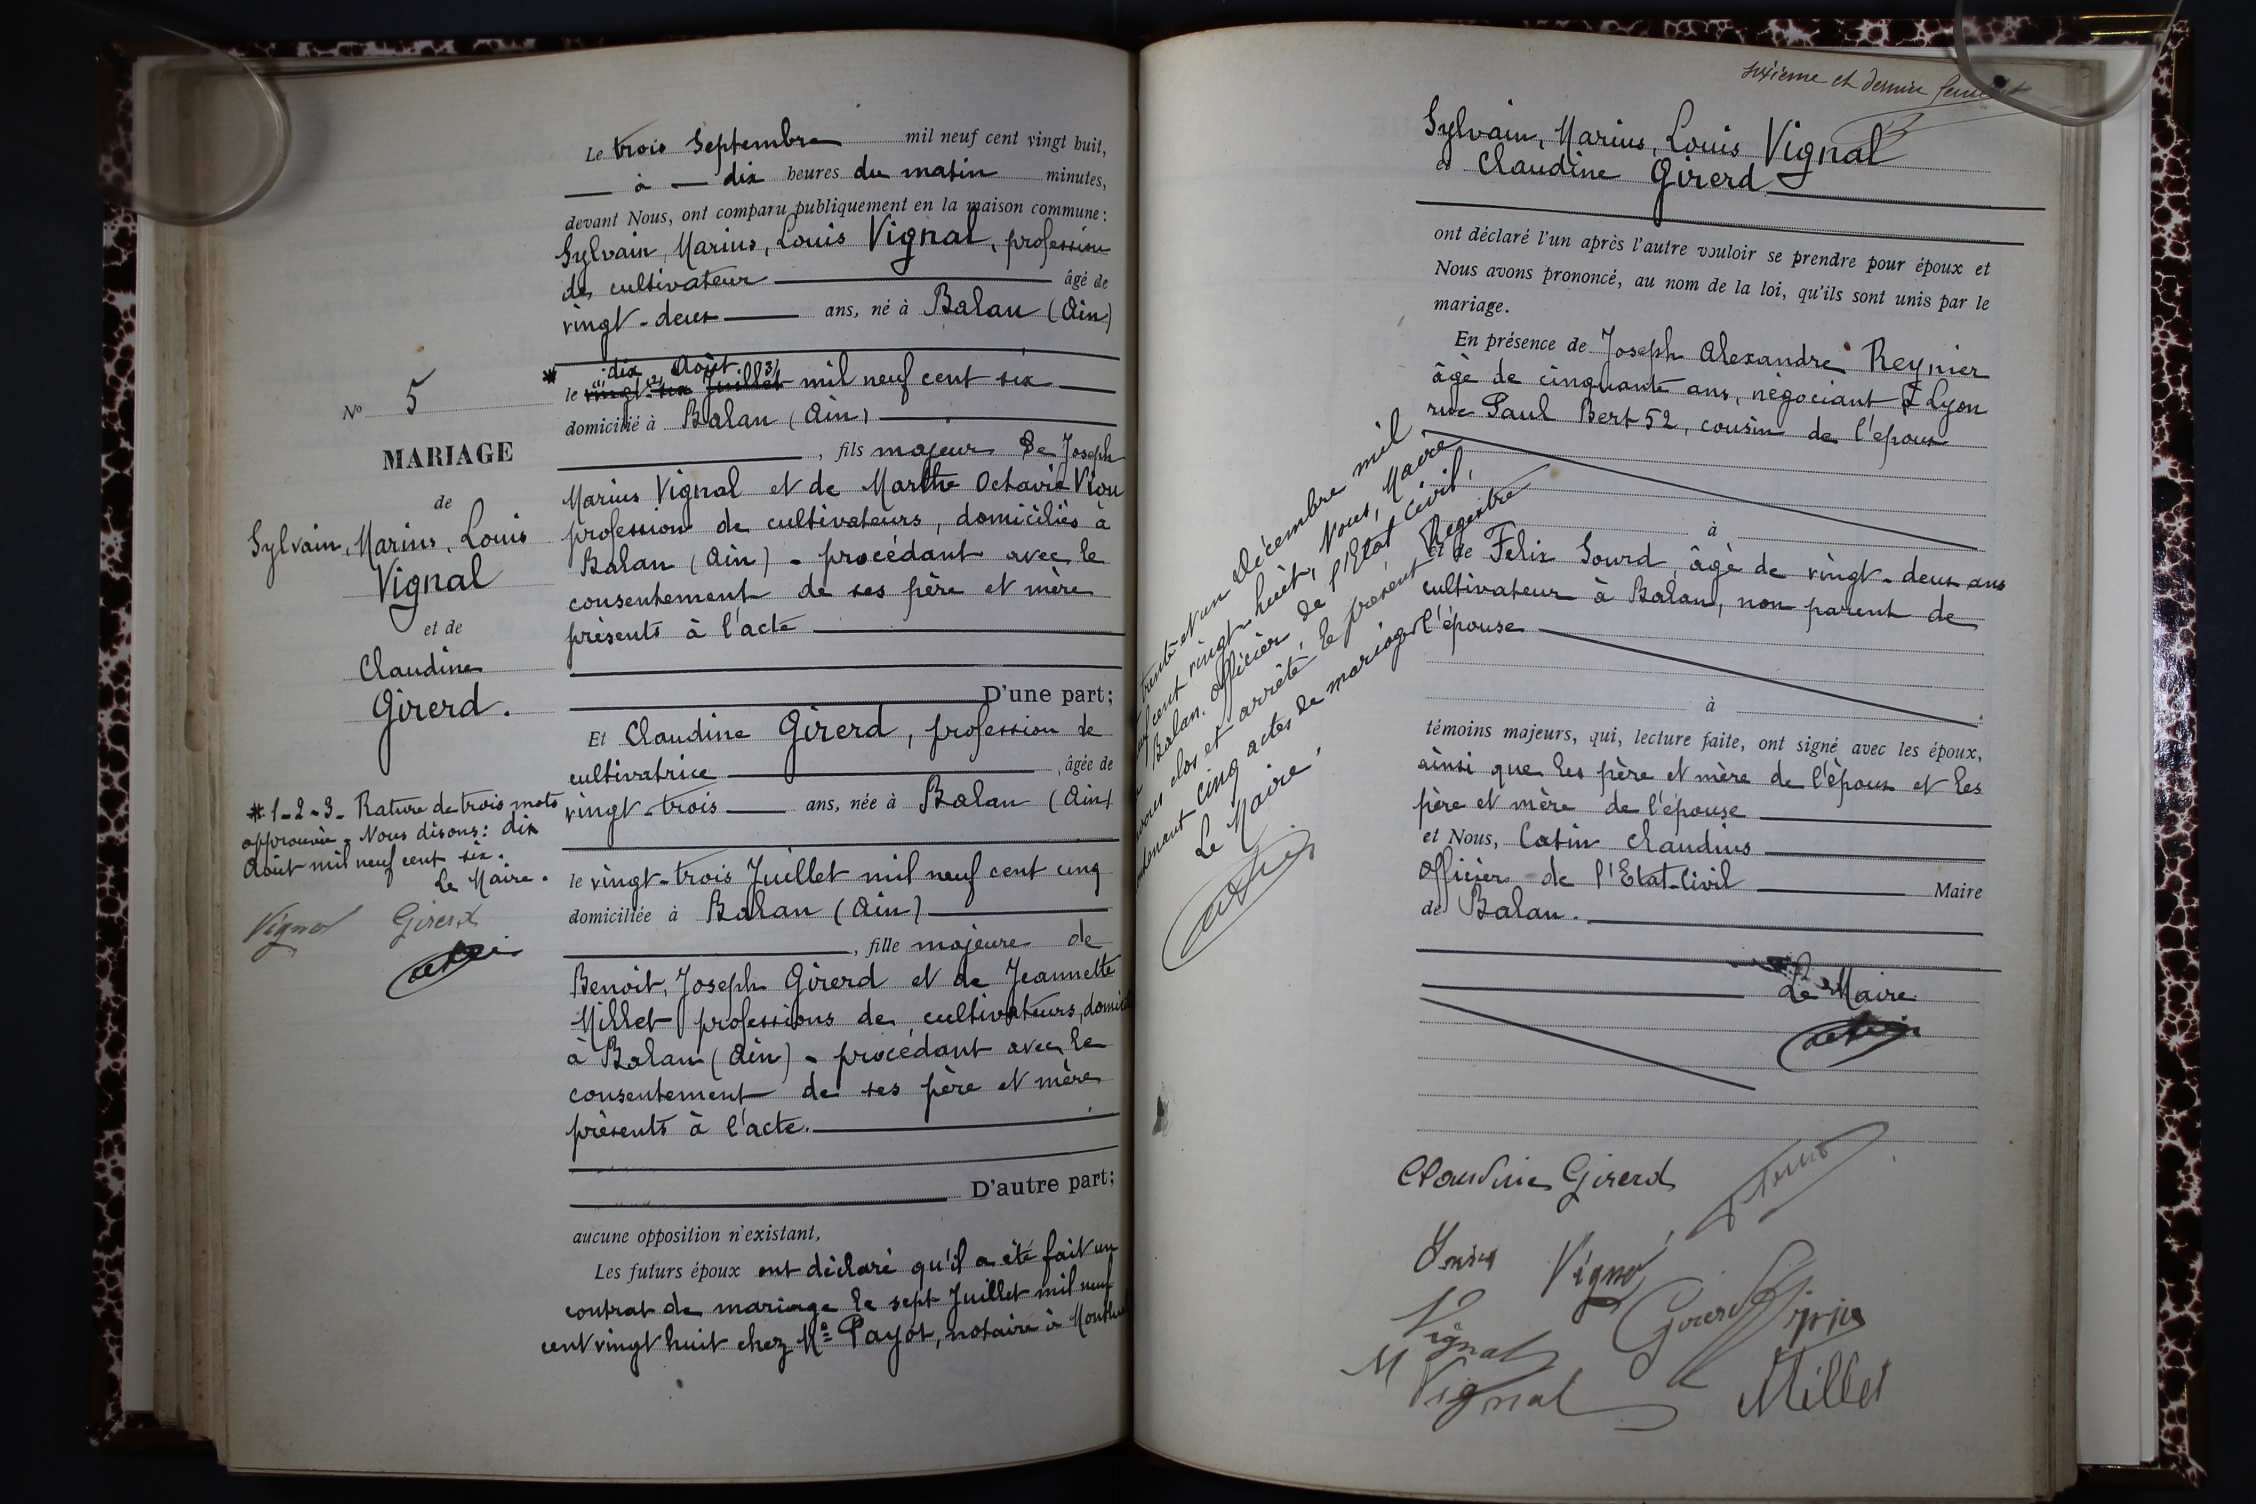 Le trois Septembre mil neuf cent vingt huit,
à dix heures du matin minutes,
devant Nous, ont comparu publiquement en la maison commune :
Sylvain, Marius, Louis Vignal, profession
de cultivateur âgé de
vingt-deux ans, né à Balan (Ain)
dix Août
* le vingt-six Juillet mil neuf cent six
domicilié à Balan (Ain)
, fils majeur de Joseph
Marius Vignal et de Marthe Octavie Viou
profession de cultivateurs, domiciliés à
Balan (Ain) - procédant avec le
consentement de ses père et mère
présents à l'acte
D'une part;
Et Claudine Girerd, profession de
cultivatrice, âgée de
vingt-trois ans, née à Balan (Ain)
le vingt-trois Juillet mil neuf cent cinq
domiciliée à Balan (Ain)
, fille majeure de
Benoit, Joseph Girerd et de Jeannette
Millet professions de cultivateurs,
à Balan (Ain) - procédant avec le
consentement de ses père et mère
présents à l'acte.
D'autre part;
aucune opposition n'existant,
Les futurs époux ont déclaré qu'il a été fait un
contrat de mariage le sept Juillet mil neuf
cent vingt huit chez Me Payot, notaire à
N° 5
MARIAGE
de
Sylvain, Marius, Louis
Vignal
et de
Claudine
Girerd.
* 1-2-3- Rature de trois mots
approuvée. Nous disons : dix
Août mil neuf cent six.
Le Maire.
Vignal Girerd
sixième et dernier feuillet
Sylvain, Marius, Louis Vignal
et Claudine Girerd
ont déclaré l'un après l'autre vouloir se prendre pour époux et
Nous avons prononcé, au nom de la loi, qu'ils sont unis par le
mariage.
En présence de Joseph Alexandre Reynier
âgé de cinquante ans, négociant à Lyon
rue Paul Bert 52, cousin de l'époux
à
et de Felix Sourd, âgé de vingt-deux ans
cultivateur à Balan, non parent de
l'épouse
à
témoins majeurs, qui, lecture faite, ont signé avec les époux,
ainsi que les père et mère de l'époux et les
père et mère de l'épouse
et Nous, Catin Claudius
Officier de l'Etat-Civil Maire
de Balan.
Le Maire
trente et un Décembre mil
cent vingt-huit, Nous, Maire
Balan. Officier de l'Etat Civil,
clos et arrêté le présent Registre
cinq actes de mariage
Le Maire.
Claudine Girerd
Vignal
Girerd
Vignal
M Vignal
Millet